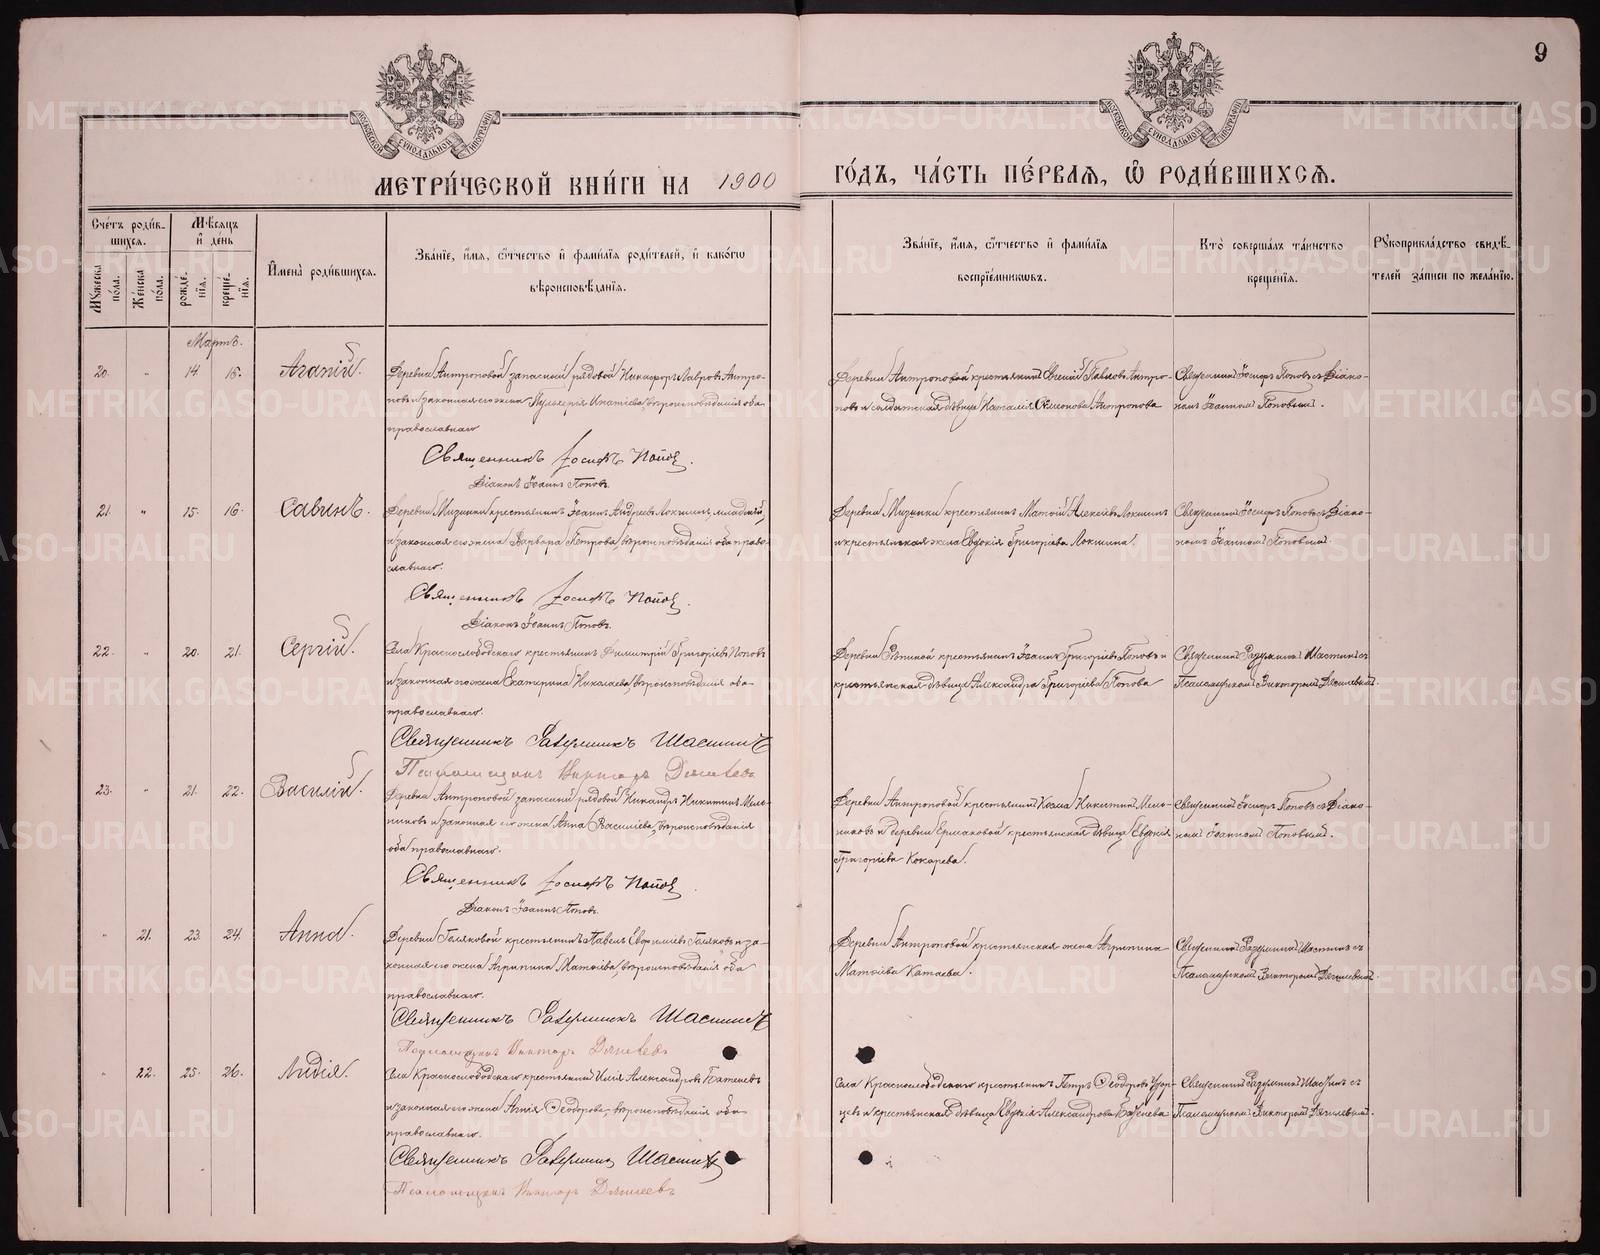 9
МЕТРИ́ЧЕСКОЙ КНИ́ГИ НА 1900 ГО́ДЪ, ЧА́СТЬ ПЕ́РВАѦ, Ѡ РОДИ́ВШИХСѦ.
Сче́тъ роди́в-
шихсѧ.
Мꙋжеска по́ла.
Же́нска по́ла.
Мѣ́сѧцъ
и҆ де́нь
рожде́-
нїѧ.
креще́-
нїѧ.
И҆мена̀ роди́вшихсѧ.
Зва́нїе, и҆́мѧ, ѻ҆́тчество и҆ фами́лїѧ роди́телей, и҆ како́гѡ
вѣроисповѣ́данїѧ.
Зва́нїе, и҆́мѧ, ѻ҆́тчество и҆ фами́лїѧ
воспрїе́мникѡвъ.
Кто̀ соверша́лъ та́инство
креще́нїѧ.
Рꙋкоприкла́дство свидѣ́-
телей за́писи по жела́нїю.
Мартъ.
20. " 14. 15. Агапій.
Деревни Антроповой запасный рядовой Никифоръ Лавровъ Антро-
повъ и законная его жена Пульхерія Игнатіева, вѣроисповѣданія оба
православнаго
Священникъ Іосифъ Попов.
Діаконъ Іоаннъ Поповъ.
Деревни Антроповой крестьянинъ Павловъ Антро-
повъ и солдатская дѣвица Наталія Симонова Антропова
Священникъ Іосифъ Поповъ съ Діако-
номъ Іоанномъ Поповымъ.
21. " 15. 16. Савинъ.
Деревни Мизинки крестьянинъ Іоаннъ Андреевъ Локшинъ, младшій,
и законная его жена Варвара Петрова, вѣроисповѣданія оба право-
славнаго.
Священникъ Іосифъ Попов.
Діаконъ Іоаннъ Поповъ.
Деревни Мизинки крестьянинъ Матѳій Алексіевъ Локшинъ
и крестьянская жена Евдокія Григоріева Локшина.
Священникъ Іосифъ Поповъ съ Діако-
номъ Іоанномъ Поповымъ.
22. " 20. 21. Сергій.
Села Краснослободскаго крестьянинъ Димитрій Григоріевъ Поповъ
и законная его жена Екатерина Николаева, вѣроисповѣданія оба
православнаго.
Священникъ Разумникъ Шастинъ
Псаломщикъ Викторъ Дягилевъ
Деревни Рѣпиной крестьянинъ Іоаннъ Григоріевъ Поповъ и
крестьянская дѣвица Александра Григоріева Попова
Священникъ Разумникъ Шастинъ съ
Псаломщикомъ Викторомъ Дягилевымъ.
23. " 21. 22. Василій.
Деревни Антроповой запасный рядовой Никандръ Никитинъ Мель-
никовъ и законная его жена Анна Василіева, вѣроисповѣданія
оба православнаго.
Священникъ Іосифъ Попов.
Діаконъ Іоаннъ Поповъ.
Деревни Антроповой крестьянинъ Козма Никитинъ Мель-
никовъ и деревни Ермаковой крестьянская дѣвица Евдокія
Григоріева Кокарева.
Священникъ Іосифъ Поповъ съ Діако-
номъ Іоанномъ Поповымъ.
" 21. 23. 24. Анна.
Деревни Голяковой крестьянинъ Павелъ Евфиміевъ Голяковъ и за-
конная его жена Агрипина Матѳіева, вѣроисповѣданія оба
православнаго.
Священникъ Разумникъ Шастинъ
Псаломщикъ Викторъ Дягилевъ
Деревни Антроповой крестьянская жена Агрипина
Матѳіева Катаева.
Священникъ Разумникъ Шастинъ съ
Псаломщикомъ Викторомъ Дягилевымъ.
" 22. 25. 26. Лидія.
Села Краснослободскаго крестьянинъ Илія Александровъ
и законная его жена Агнія Ѳеодорова, вѣроисповѣданія оба
православнаго.
Священникъ Разумникъ Шастинъ
Псаломщикъ Викторъ Дягилевъ
Села Краснослободскаго крестьянинъ Петръ Ѳеодоровъ
и крестьянская дѣвица Евдокія Александрова
Священникъ Разумникъ Шастинъ съ
Псаломщикомъ Викторомъ Дягилевымъ.
METRIKI.GASO-URAL.RU